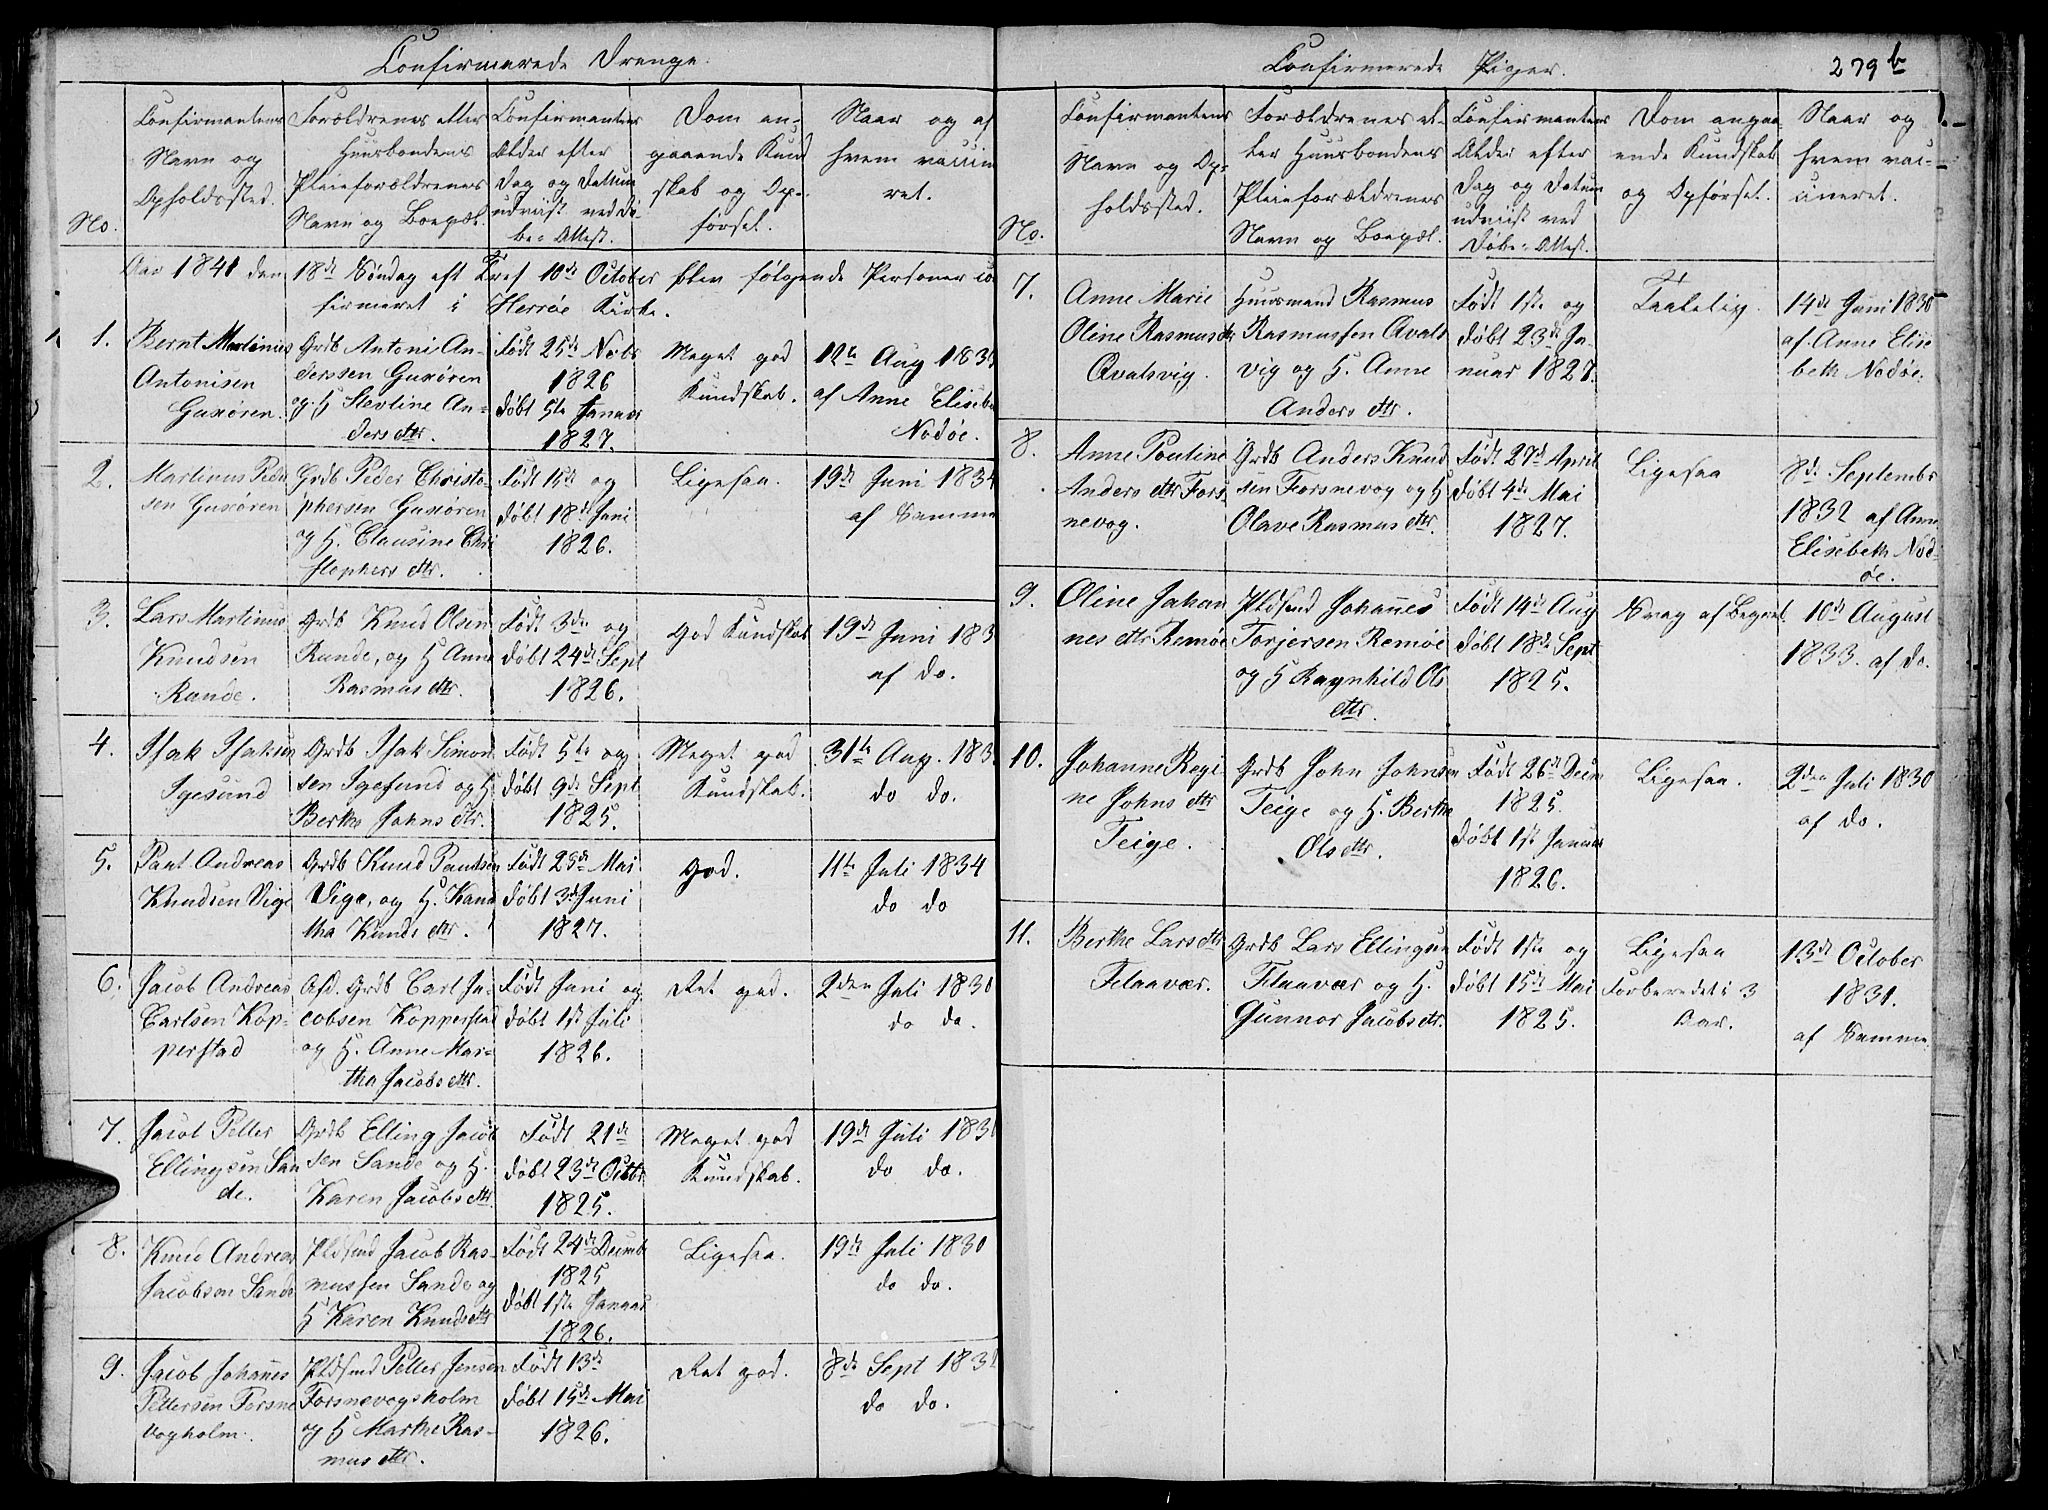 Confirmerede Drenge.
No.
Confirmantens
Navn og
Opholdssted.
Forældrenes eller
Huusbondens
Pleieforældrenes
Navn og Boepæl.
Confirmantens
Alder efter
Dag og Datum
udviist ved Dø-
be-Attest.
Dom an-
gaaende Kund
skab og Op-
førsel.
Naar og af
hvem vaccine
ret.
Aar 1841 den 18de Søndag eft Tref 10de October bleve følgende Personer con
firmeret i Herrøe Kirke.
1.
Bernt Martinus
Antonisen
Gurøren.
Grdb Antoni An-
derssen Gurøren
og H Stevline An-
ders dttr.
Født 25de Novbr
1826
døbt 5te Januar
1827.
Meget god
Kundskab.
12te Aug 183
af Anne Elisebe
Nodøe.
2.
Martinus Peder
sen Gurøren
Grdb Peder Christo-
phersen Gurøren
og H. Clausine Chri
stophers dttr.
Født 15de og
døbt 18de Juni
1826.
Ligesaa.
19de Juni 1834
af Samme
3.
Lars Martinus
Knudsen
Runde.
Grdb Knud Olsen
Runde, og H Anne
Rasmus dttr.
Født 3de og
døbt 24de Sept
1826.
God Kundskab
19de Juni 183
af do.
4.
Isak Isaksen
Igesund
Grdb Isak Simon
sen Igesund og H
Berthe Johns dtr.
Født 5te og
døbt 9de Sept
1825.
Meget god
Kundskab.
31te Aug. 183
do do.
5.
Paul Andreas
Knudsen Vige
Grdb Knud Paulsen
Vige, og H. Kand
tha Knuds dttr.
Født 25de Mai
døbt 3de Juni
1827.
God.
11te Juli 1834
do do
6.
Jacob Andreas
Carlsen Kop-
perstad
Afd. Grdb Carl Ja-
cobsen Kopperstad
og H. Anne Mar-
tha Jacobs dttr.
Født Juni og
døbt 1ste Juli
1826.
Ret god.
2den Juli 1830
do do.
7.
Jacob Petter
Ellingsen San
de.
Grdb Elling Jacob
sen Sande og H.
Karen Jacobs dttr
Født 21de
døbt 23de Octbr
1825.
Meget god
Kundskab.
19de Juli 183
do do.
8.
Knud Andreas
Jacobsen Sande
Pldsmd Jacob Ras-
mussen Sande og
H Karen Knuds dttr
Født 24de Decmb
1825
døbt 1ste Januar
1826.
Ligesaa.
19de Juli 1830
do do.
9.
Jacob Johannes
Pettersen Forsne
vogholm.
Pldsmd Petter Jensen
Forsnevogsholm
og H Marthe Ras-
mus dttr.
Født 13de
døbt 15de Mai
1826.
Ret god.
8de Sept 183
do do.
Confirmerede Piger.
279b
No.
Confirmantens
Navn og Op-
holdssted.
Forældrenes el-
ler Huusbondens
Pleieforældrenes
Navn og Boepæl.
Confirmantens
Alder efter
Dag og Datum
udviist ved
Døbe-Attest.
Dom angaa-
ende Kundskab
og Opførsel.
Naar og
hvem vac-
cineret.
7.
Anne Marie
Oline Rasmusdtr
Qvalsvig.
Huusmand Rasmus
Rasmussen Qvals
vig og H. Anne
Anders dttr.
Født 1ste og
døbt 23de Ja-
nuar 1827.
Taalelig.
14de Juni 1830
af Anne Elise
beth Nodøe.
8.
Anne Pouline
Anders dttr Fors-
nevog.
Grdb Anders Knud
sen Forsnevog og H
Olave Rasmus dttr.
Født 27de April
døbt 4de Mai
1827.
Ligesaa
8de Septembr
1832 af Anne
Elisebeth Nod-
øe.
9.
Oline Johan
nes dttr Remøe
Pldsmd Johannes
Torjersen Remøe
og H Ragnhild Ols
dttr.
Født 14de Aug
døbt 18de Sept
1825.
Svag af Begreb.
10de August
1833. af do.
10.
Johanne Regi
ne Johns dttr
Teige.
Grdb John Johnsen
Teige og H. Berthe
Ols dttr.
Født 26de Decm
1825.
døbt 1ste Januar
1826.
Ligesaa.
2den Juli 1830
af do.
11.
Berthe Lars dttr
Flaavær.
Grdb Lars Ellingsen
Flaavær og H.
Gunnor Jacobs dtr.
Født 1ste og
døbt 15de Mai
1825.
Ligesaa
Forberedet i 3
Aar.
13de October
1831.
af Samme.